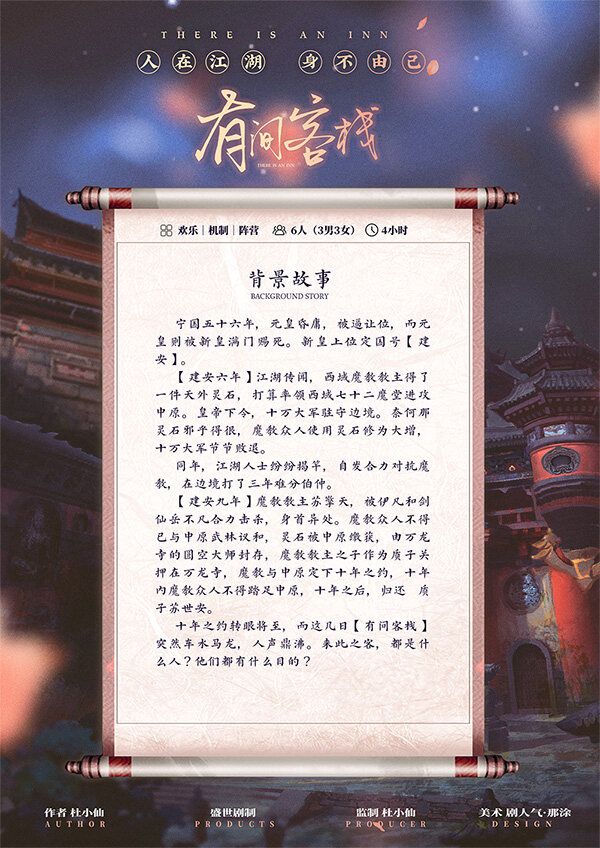 THERE IS AN INN
人在江湖 身不由己
有间客栈
THERE IS AN INN
欢乐｜机制｜阵营 6人（3男3女） 4小时
背景故事
BACKGROUND STORY
宁国五十六年，元皇昏庸，被逼让位，而元
皇则被新皇满门赐死。新皇上位定国号【建
安】。
【建安六年】江湖传闻，西域魔教教主得了
一件天外灵石，打算率领西域七十二魔堂进攻
中原。皇帝下令，十万大军驻守边境。奈何那
灵石邪乎得很，魔教众人使用灵石修为大增，
十万大军节节败退。
同年，江湖人士纷纷揭竿，自发合力对抗魔
教，在边境打了三年难分伯仲。
【建安九年】魔教教主苏擎天，被伊凡和剑
仙岳不凡合力击杀，身首异处。魔教众人不得
已与中原武林议和，灵石被中原缴获，由万龙
寺的圆空大师封存，魔教教主之子作为质子关
押在万龙寺，魔教与中原定下十年之约，十年
内魔教众人不得踏足中原，十年之后，归还 质
子苏世安。
十年之约转眼将至，而这几日【有间客栈】
突然车水马龙，人声鼎沸。来此之客，都是什
么人？他们都有什么目的？
作者 杜小仙 盛世剧制 监制 杜小仙 美术 剧人气·那涂
AUTHOR PRODUCTS PRODUCER DESIGN